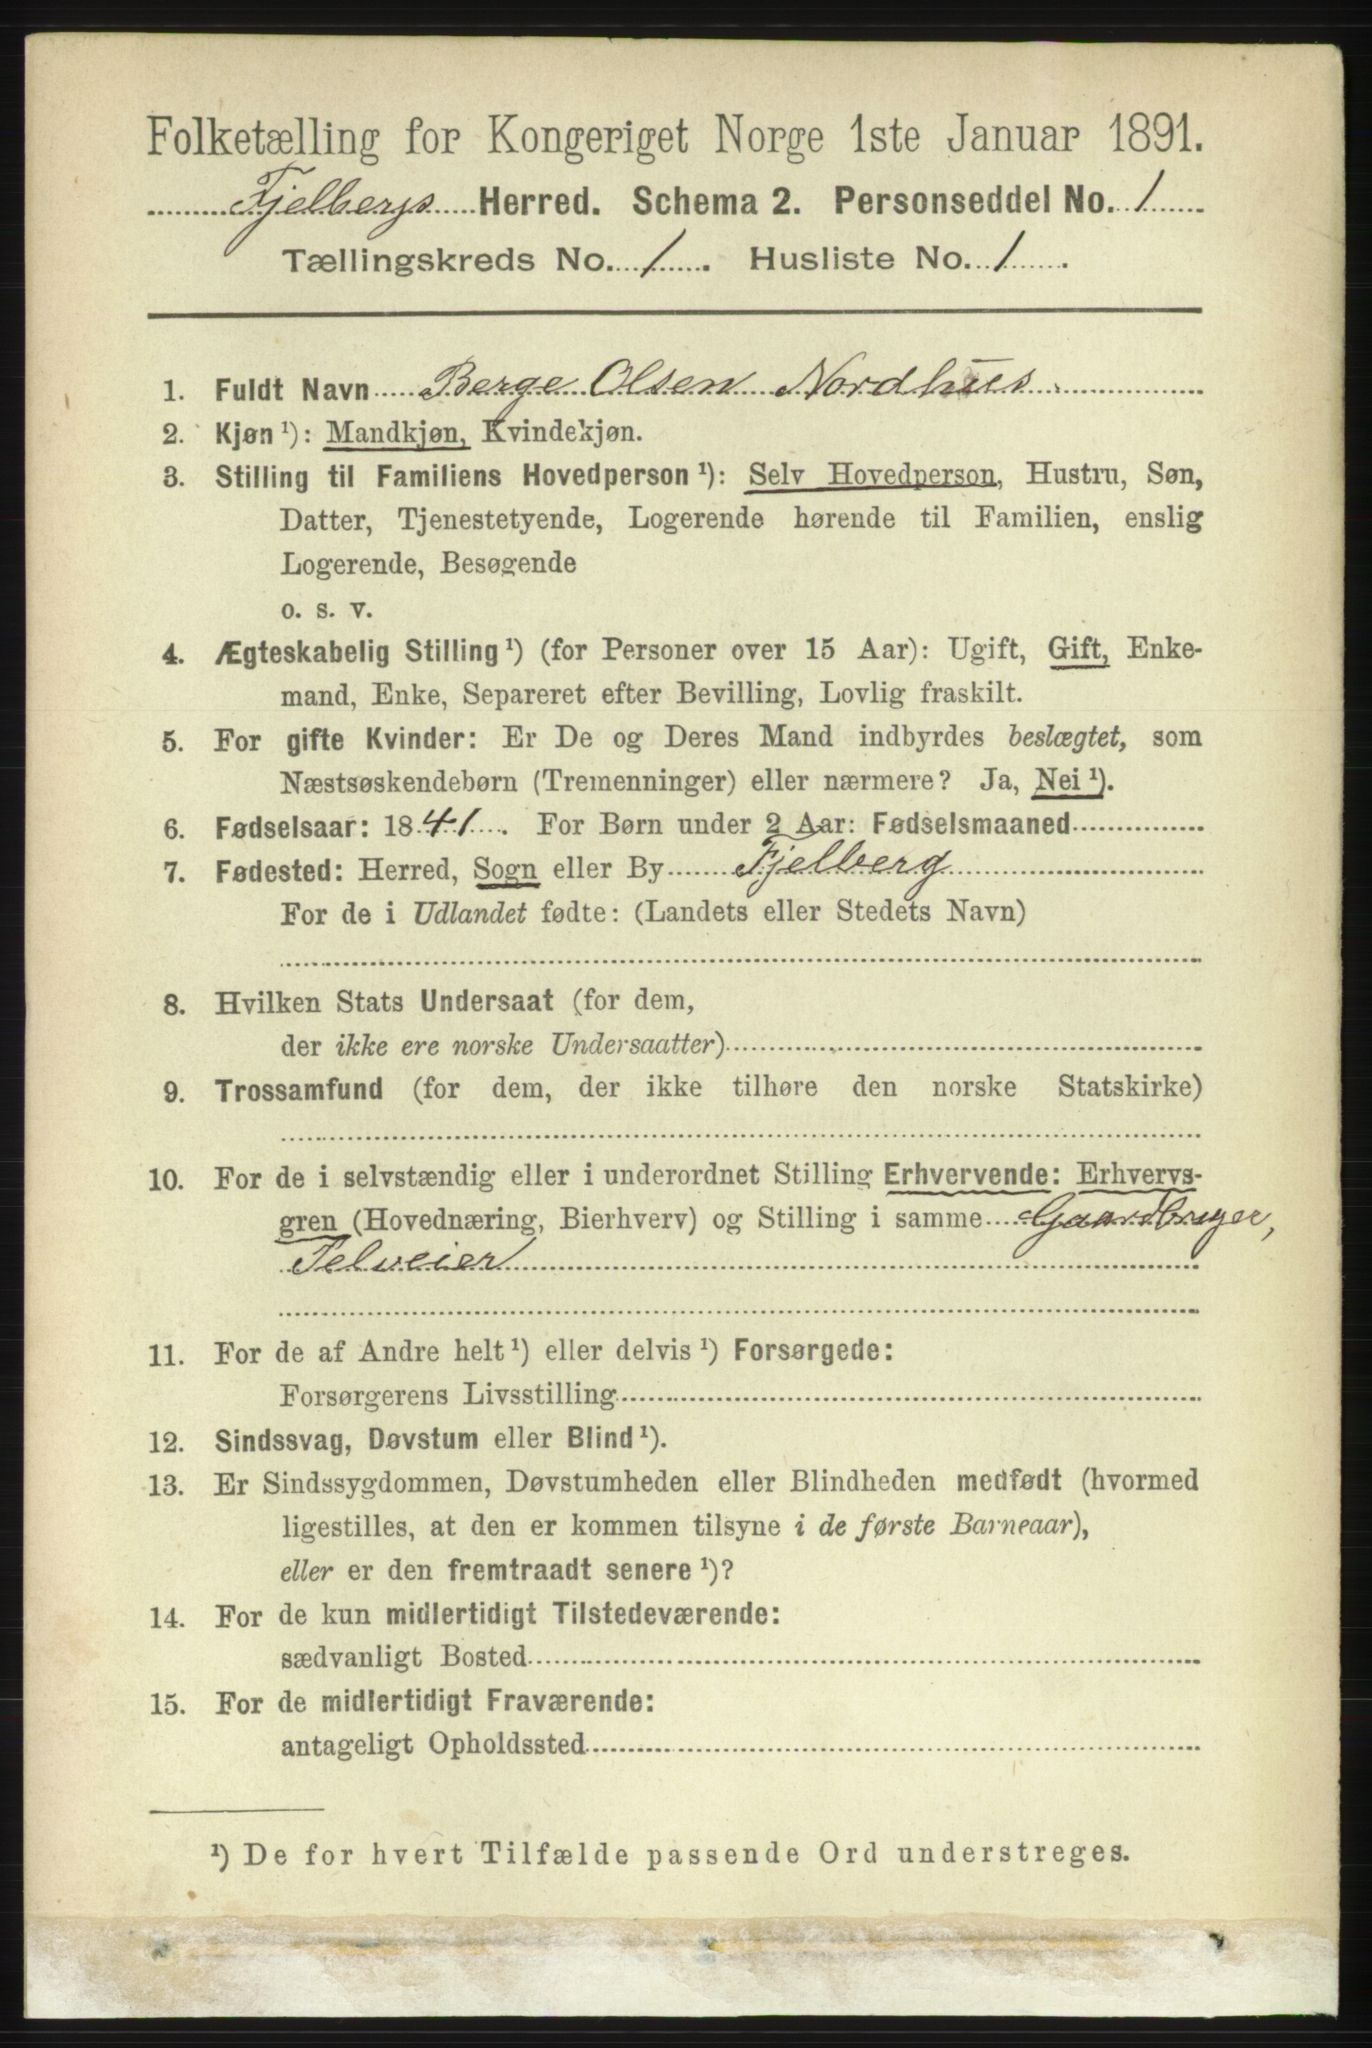 Folketælling for Kongeriget Norge 1ste Januar 1891.
Fjelbergs Herred. Schema 2. Personseddel No. 1
Tællingskreds No. 1. Husliste No. 1.
1. Fuldt Navn Berge Olsen Nordhus.
2. Kjøn ¹): Mandkjøn, Kvindekjøn.
3. Stilling til Familiens Hovedperson ¹): Selv Hovedperson, Hustru, Søn,
Datter, Tjenestetyende, Logerende hørende til Familien, enslig
Logerende, Besøgende
o. s. v.
4. Ægteskabelig Stilling ¹) (for Personer over 15 Aar): Ugift, Gift, Enke-
mand, Enke, Separeret efter Bevilling, Lovlig fraskilt.
5. For gifte Kvinder: Er De og Deres Mand indbyrdes beslægtet, som
Næstsøskendebørn (Tremenninger) eller nærmere? Ja, Nei ¹).
6. Fødselsaar: 1841. For Børn under 2 Aar: Fødselsmaaned
7. Fødested: Herred, Sogn eller By Fjelberg
For de i Udlandet fødte: (Landets eller Stedets Navn)
8. Hvilken Stats Undersaat (for dem,
der ikke ere norske Undersaatter)
9. Trossamfund (for dem, der ikke tilhøre den norske Statskirke)
10. For de i selvstændig eller i underordnet Stilling Erhvervende: Erhvervs-
gren (Hovednæring, Bierhverv) og Stilling i samme Gaardbruger,
Selveier
11. For de af Andre helt ¹) eller delvis ¹) Forsørgede:
Forsørgerens Livsstilling
12. Sindssvag, Døvstum eller Blind ¹).
13. Er Sindssygdommen, Døvstumheden eller Blindheden medfødt (hvormed
ligestilles, at den er kommen tilsyne i de første Barneaar),
eller er den fremtraadt senere ¹)?
14. For de kun midlertidigt Tilstedeværende:
sædvanligt Bosted
15. For de midlertidigt Fraværende:
antageligt Opholdssted
¹) De for hvert Tilfælde passende Ord understreges.